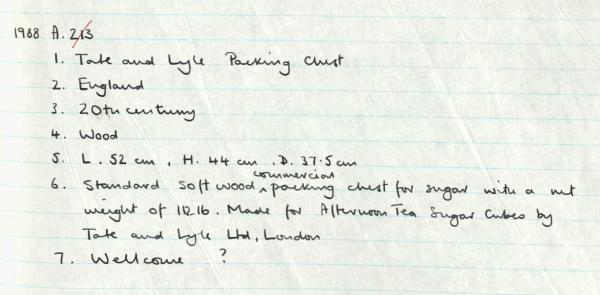 1988 A. 213
1. Tate and Lyle Packing Chest
2. England
3. 20th century
4. Wood
5. L. 52 cm, H. 44 cm. D. 37.5 cm
commercial
6. Standard soft wood ^ packing chest for sugar with a net
weight of 112lb. Made for Afternoon Tea Sugar Cubes by
Tate and Lyle Ltd, London
7. Wellcome ?